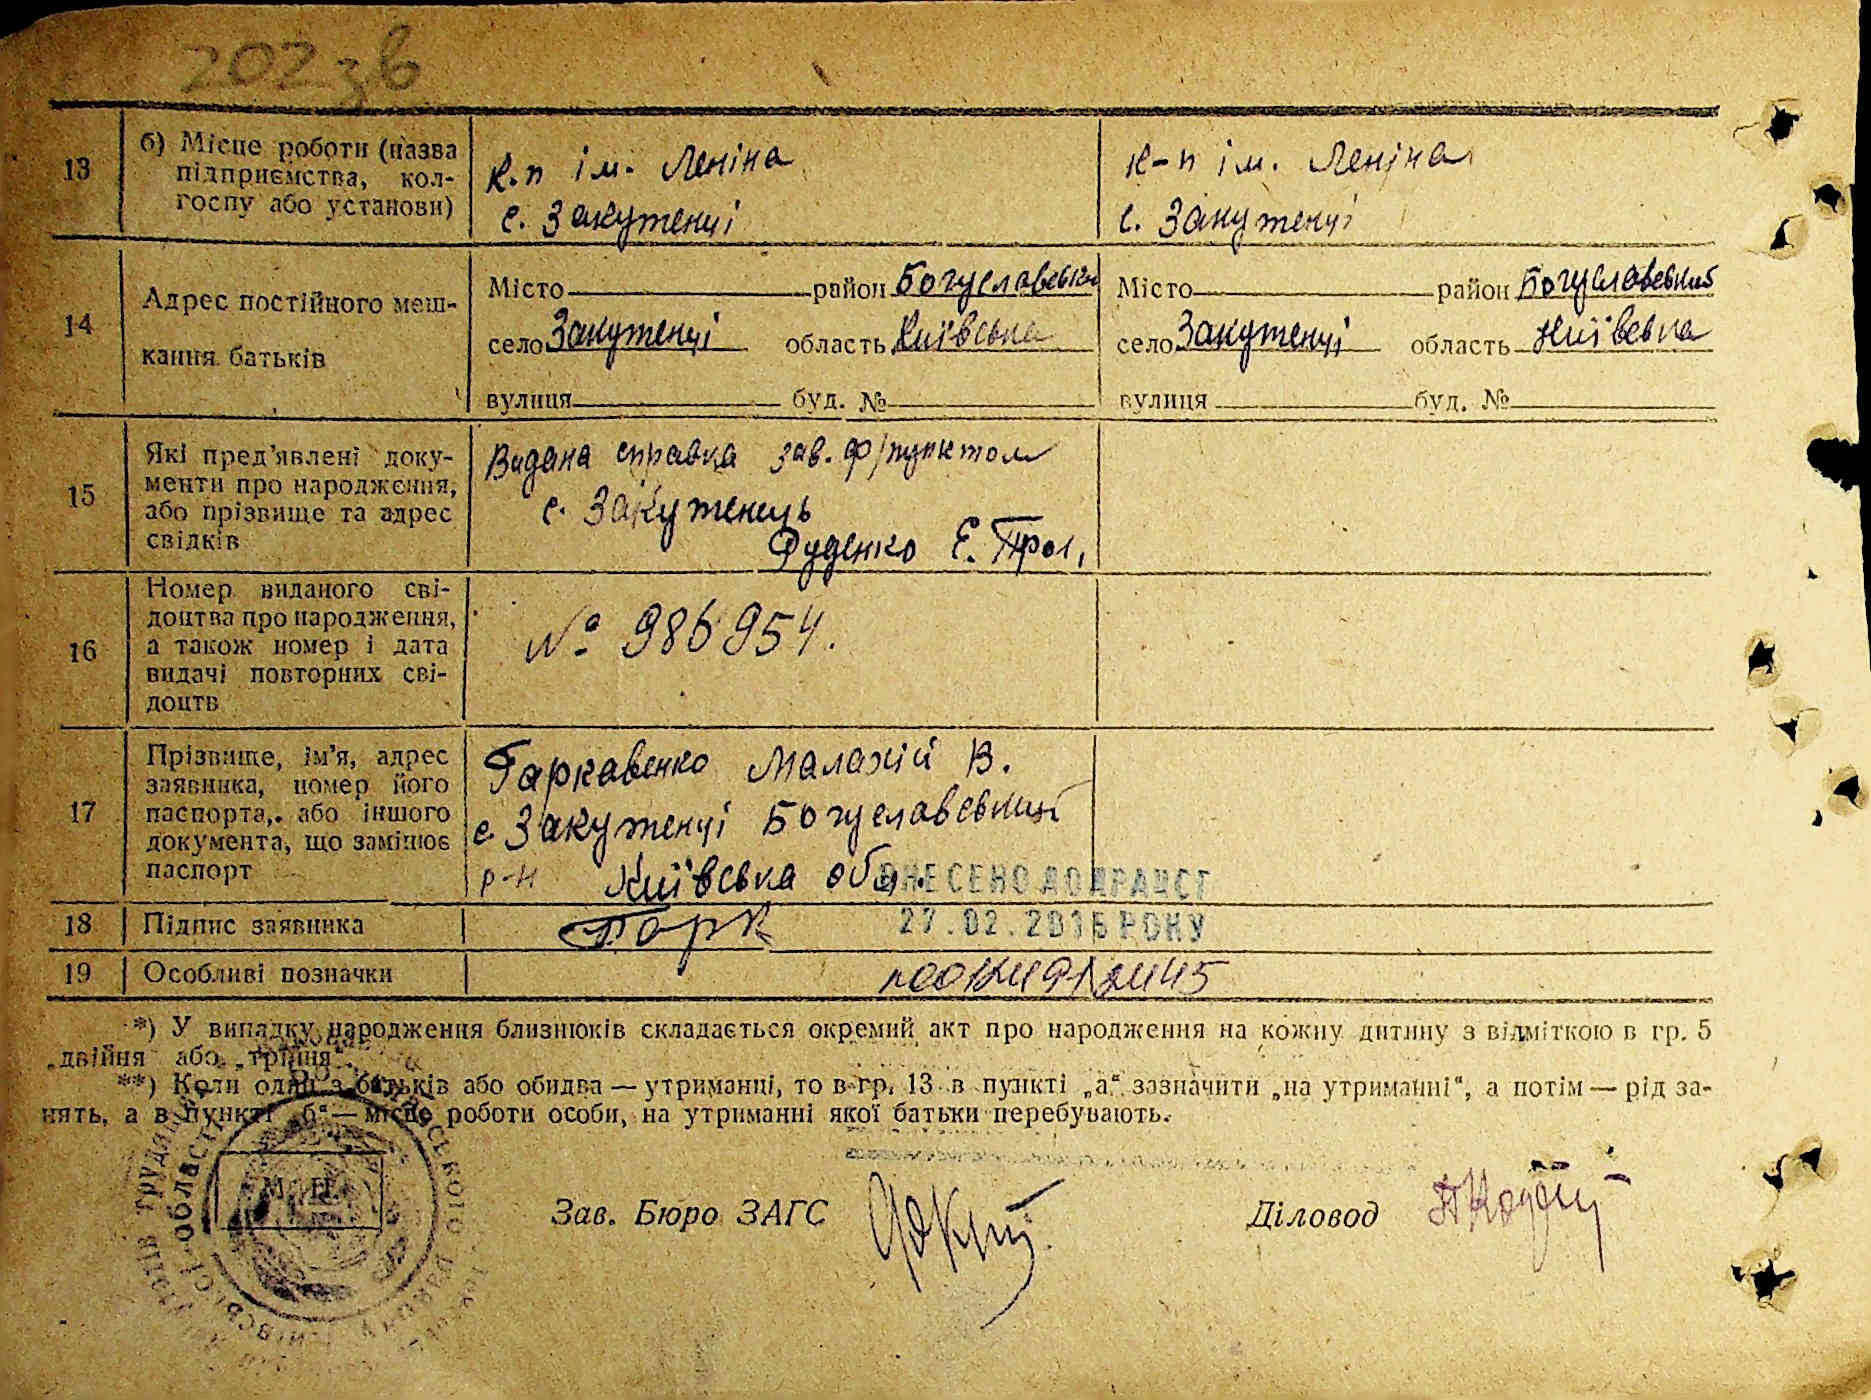 202 зв
13
б) Місце роботи (назва
підприємства, кол-
госпу або установи)
к.п ім. Леніна
с. Закутенці
к-п ім. Леніна
с. Закутенці
14
Адрес постійного меш-
кання батьків
Місто район Богуславськи
село Закутенці область Київська
вулиця буд. №
Місто район Богуславський
село Закутенці область Київська
вулиця буд. №
15
Які пред'явлені доку-
менти про народження,
або прізвище та адрес
свідків
Видана справка зав. ф/пунктом
с. Закутенець
Руденко Є. Трох.
16
Номер виданого сві-
доцтва про народження,
а також номер і дата
видачі повторних сві-
доцтв
№ 986954.
17
Прізвище, ім'я, адрес
заявника, номер його
паспорта, або іншого
документа, що замінює
паспорт
Гаркавенко Малахій В.
с Закутенці Богуславський
р-н Київська обл.
ВНЕСЕНО ДО ДРАЦСГ
18
Підпис заявника
Гарк
27.02.2016 РОКУ
19
Особливі позначки
*) У випадку народження близнюків складається окремий акт про народження на кожну дитину з відміткою в гр. 5
„двійня" або „трійня".
**) Коли один з батьків або обидва — утриманці, то в гр. 13 в пункті „а" зазначити „на утриманні", а потім — рід за-
нять, а в пункті „б" — місце роботи особи, на утриманні якої батьки перебувають.
М. П.
Зав. Бюро ЗАГС
Діловод